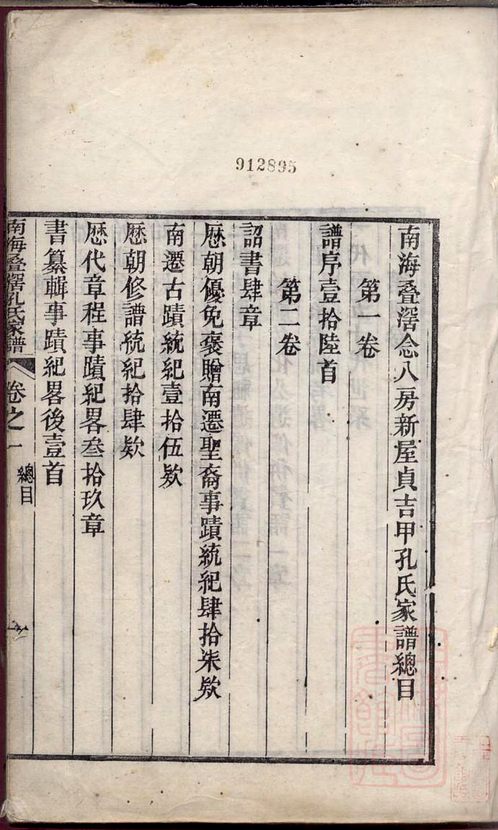 912895
南海疊滘念八房新屋貞吉甲孔氏家譜總目
第一卷
譜序壹拾陸首
第二卷
詔書肆章
歷朝優免褒贈南遷聖裔事蹟統紀肆拾柒欵
南遷古蹟統紀壹拾伍欵
歷朝修譜統紀拾肆欵
歷代章程事蹟紀畧叁拾玖章
書纂輯事蹟紀畧後壹首
南海疊滘孔氏家譜 卷之一 總目 一